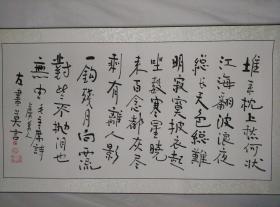 堆來枕上愁何狀
江海翻波浪夜
長天色總難
明寂寞披衣起
坐數寒星曉
來百念都灰尽
剩有離人影
一鈎殘月向西流
對此不抛也
無由毛主席詩
虞美人
左書